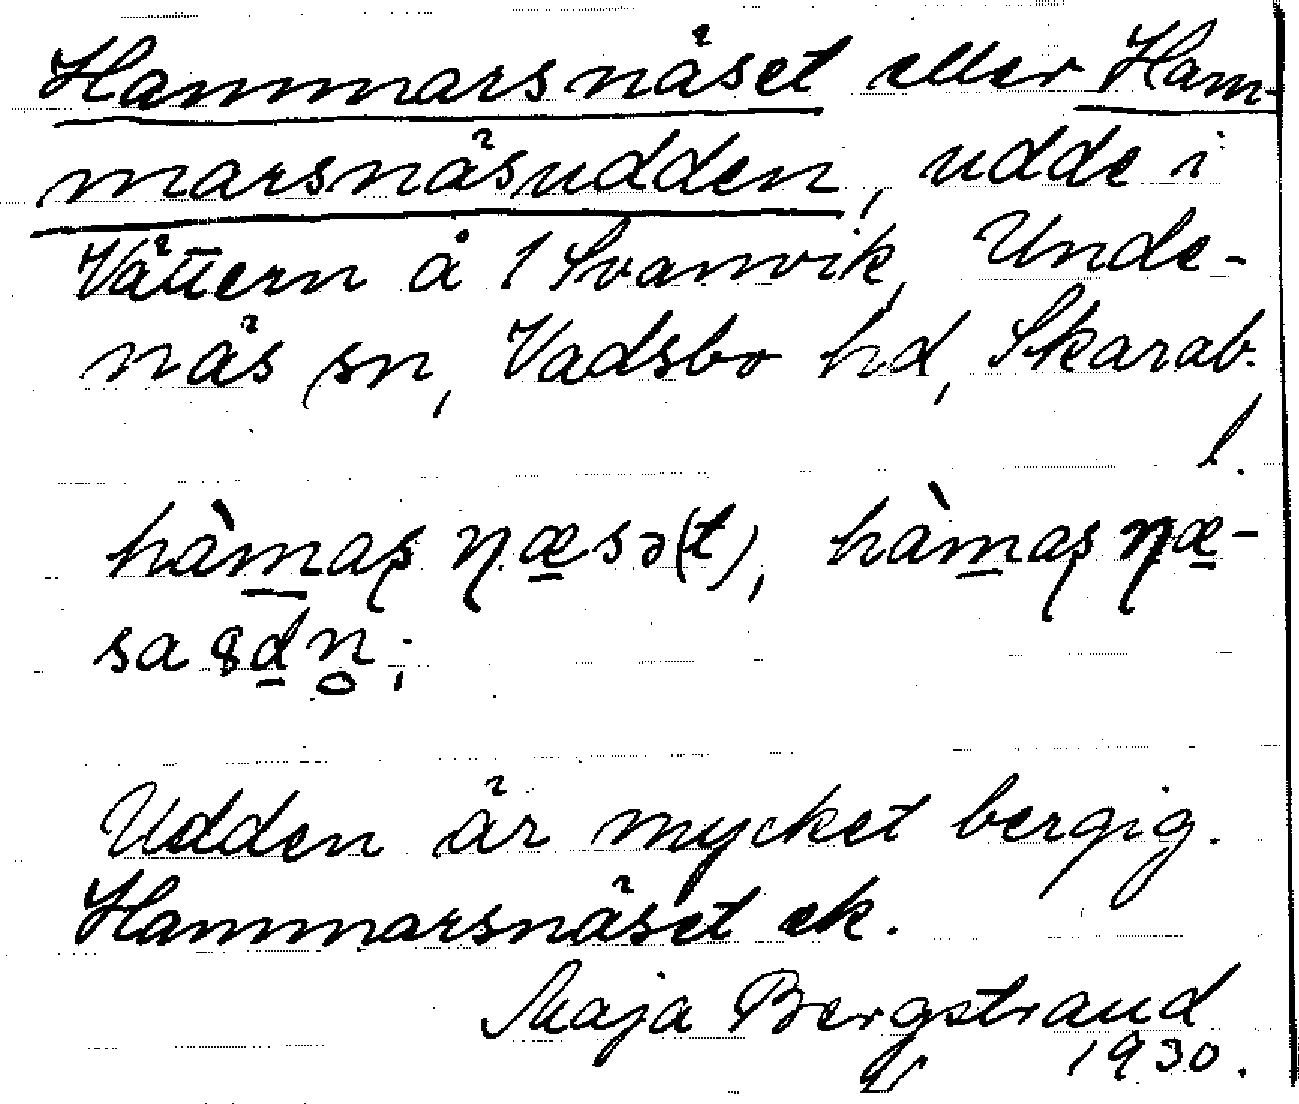 Hammarsnäset eller Ham-
marsnäsudden, udde i
Vättern å 1 Svanvik, Unde-
näs sn, Vadsbo hd, Skarab.
l.
hàmaʂ ɳæsə(t), hàmaʂ ɳæ-
sa
Udden är mycket bergig.
Hammarsnäset ek.
Maja Bergstrand
1930.